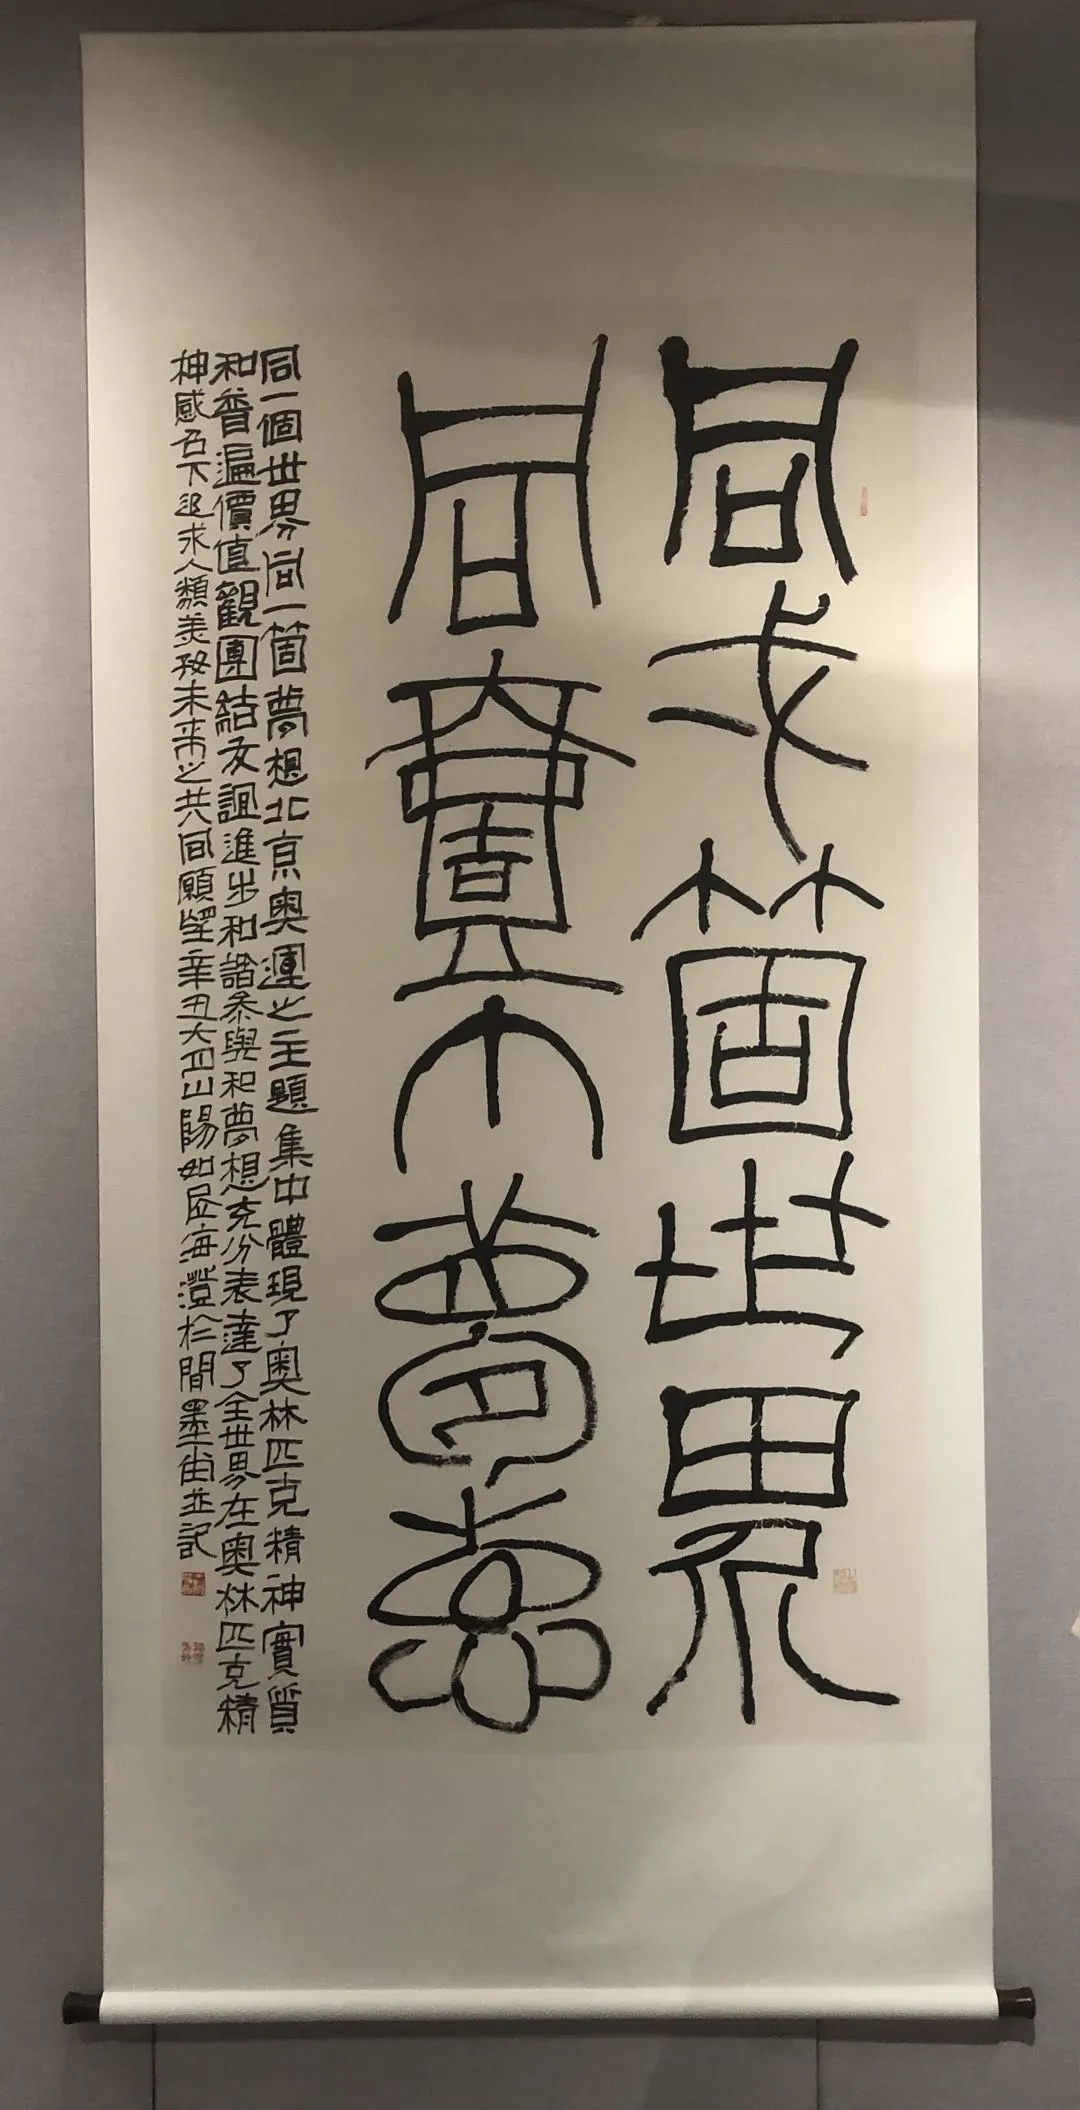 同弌箇世界
同壹个夢想
同一個世界同一箇夢想北京奧運之主題集中體現了奧林匹克精神實質
和普遍價值觀團結友誼進步和諧參與和夢想充分表達了全世界在奧林匹克精
神感召下追求人類美好未來之共同願望辛丑六月山陽海澄於間墨並記